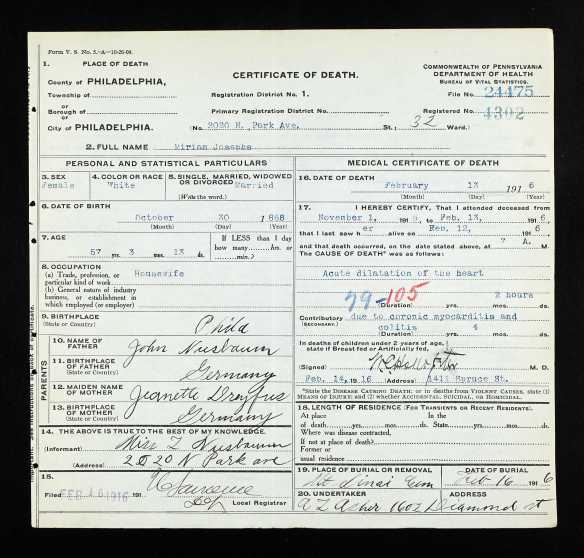 Form V. S. No. 5.—A—10-26-08.
1. PLACE OF DEATH
County of PHILADELPHIA,
Township of
or
Borough of
or
City of PHILADELPHIA.
CERTIFICATE OF DEATH.
Registration District No. 1.
Primary Registration District No.
(No. 2020 N. Park Ave. St.; 32 Ward.)
COMMONWEALTH OF PENNSYLVANIA
DEPARTMENT OF HEALTH
BUREAU OF VITAL STATISTICS.
File No. 24475
Registered No. 4302
2. FULL NAME Miriam Josephs
PERSONAL AND STATISTICAL PARTICULARS
3. SEX
Female
4. COLOR OR RACE
White
5. SINGLE, MARRIED, WIDOWED
OR DIVORCED Married
(Write the word.)
6. DATE OF BIRTH
October 30 1858
(Month) (Day) (Year)
7. AGE
57 yrs. 3 mos. 13 ds.
If LESS than 1 day
how many hrs. or
min.?
8. OCCUPATION
(a) Trade, profession, or
particular kind of work Housewife
(b) General nature of industry
business, or establishment in
which employed (or employer)
9. BIRTHPLACE
(State or Country) Phila
PARENTS
10. NAME OF
FATHER John Nusbaum
11. BIRTHPLACE
OF FATHER
(State or Country) Germany
12. MAIDEN NAME
OF MOTHER Jeanette Dreyfus
13. BIRTHPLACE
OF MOTHER
(State or Country) Germany
14. THE ABOVE IS TRUE TO THE BEST OF MY KNOWLEDGE.
(Informant) Miss Z Nusbaum
(Address) 2020 N Park ave
15.
Filed FEB 16 1916 191
Local Registrar
MEDICAL CERTIFICATE OF DEATH
16. DATE OF DEATH
February 13 1916
(Month) (Day) (Year)
17. I HEREBY CERTIFY, That I attended deceased from
November 1, 1915, to Feb. 13, 1916,
that I last saw her alive on Feb. 12, 1916
and that death occurred, on the date stated above, at ? A. M.
The CAUSE OF DEATH* was as follows:
Acute dilatation of the heart
79-105
2 hours
(Duration) yrs. mos. ds.
Contributory due to coronic myocarditis and
(SECONDARY.) colitis 4
(Duration) yrs. mos. ds.
In deaths of children under 2 years of age,
state if Breast fed or Artificially fed,
(Signed) M. D.
Feb. 14, 1916 (Address) 1411 Spruce St.
*State the DISEASE CAUSING DEATH, or in deaths from VIOLENT CAUSES, state (1)
MEANS OF INJURY; and (2) whether ACCIDENTAL, SUICIDAL, OR HOMICIDAL.
18. LENGTH OF RESIDENCE (FOR TRANSIENTS OR RECENT RESIDENTS).
At place In the
of death yrs. mos. ds. State yrs. mos. ds.
Where was disease contracted,
If not at place of death?
Former or
usual residence
19. PLACE OF BURIAL OR REMOVAL
Mt Sinai Cem
DATE OF BURIAL
Feb 16 1916
20. UNDERTAKER
A Z Asher
ADDRESS
1602 Diamond st